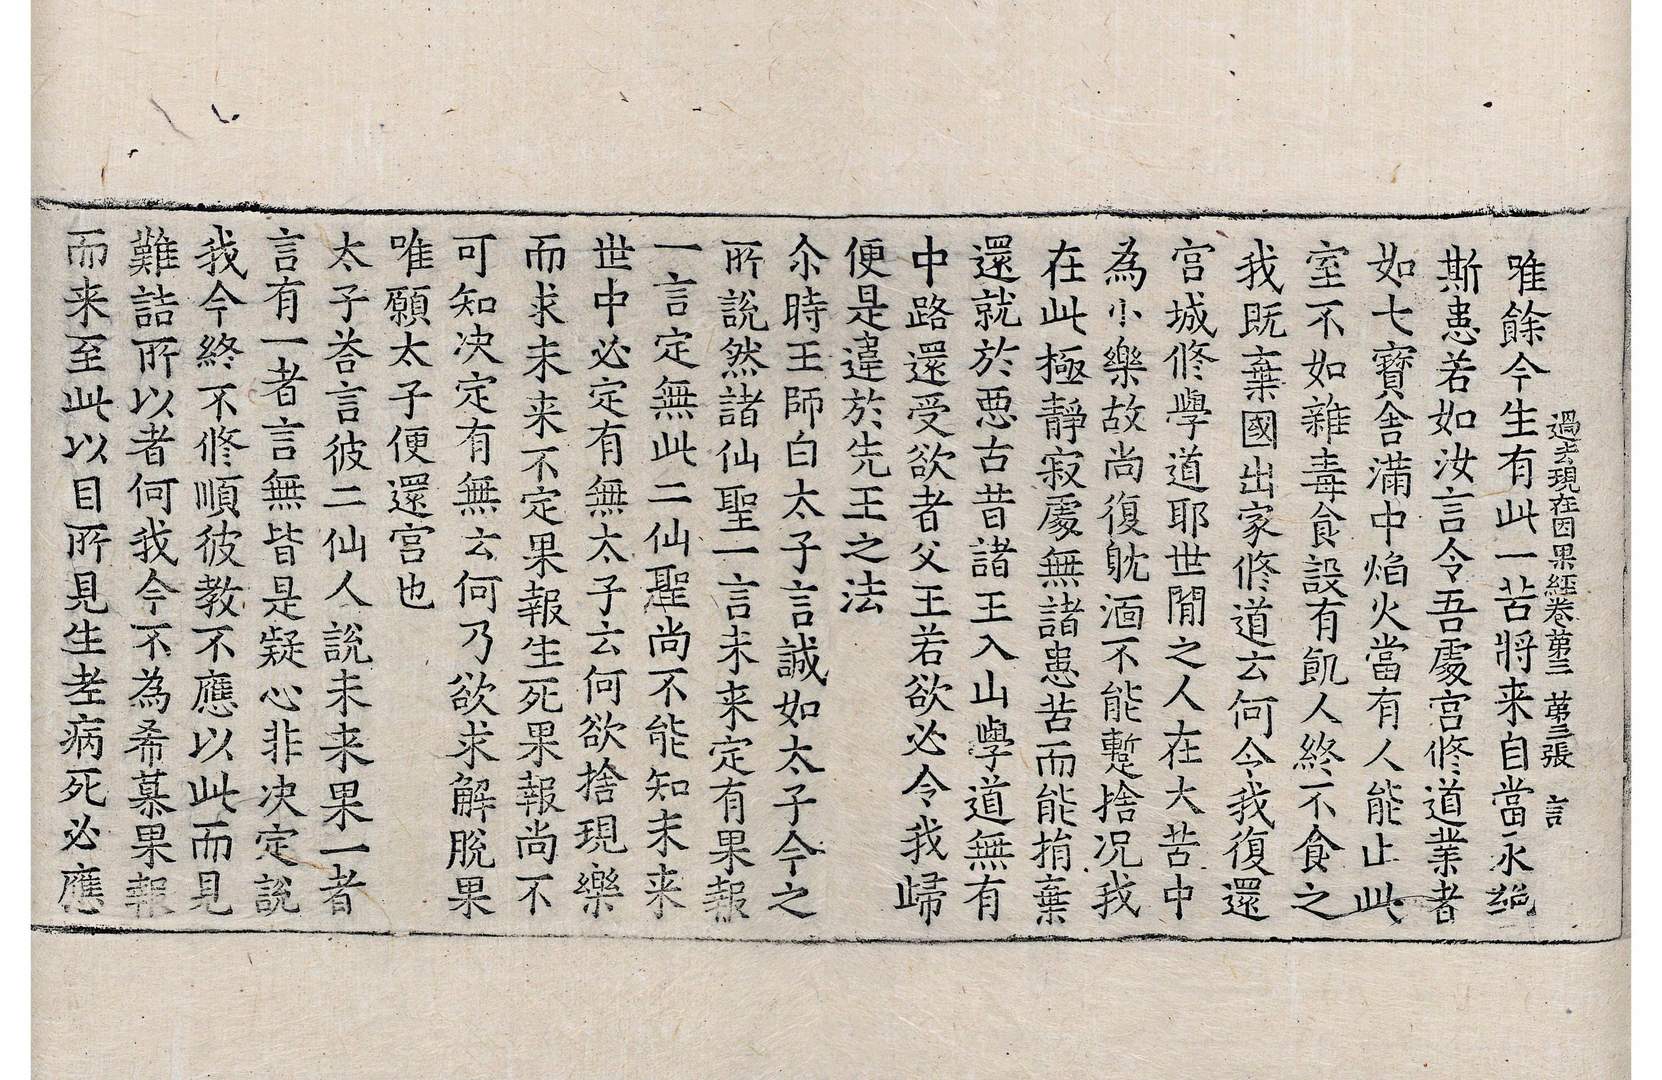 過去現在因果經卷第三 第三張 言
唯餘今生有此一苦將来自當永絕
斯患若如汝言令吾處宮修道業者
如七寶舍滿中焰火當有人能止此
室不如雜毒食設有飢人終不食之
我既棄國出家修道云何令我復還
宮城修學道耶世閒之人在大苦中
為小樂故尚復躭湎不能蹔捨况我
在此極靜寂處無諸患苦而能捐棄
還就於惡古昔諸王入山學道無有
中路還受欲者父王若欲必令我歸
便是違於先王之法
尒時王師白太子言誠如太子今之
所說然諸仙聖一言未来定有果報
一言定無此二仙聖尚不能知未来
世中必定有無太子云何欲捨現樂
而求未来不定果報生死果報尚不
可知决定有無云何乃欲求解脫果
唯願太子便還宮也
太子荅言彼二仙人說未来果一者
言有一者言無皆是疑心非决定說
我今終不修順彼教不應以此而見
難詰所以者何我今不為希慕果報
而来至此以目所見生老病死必應